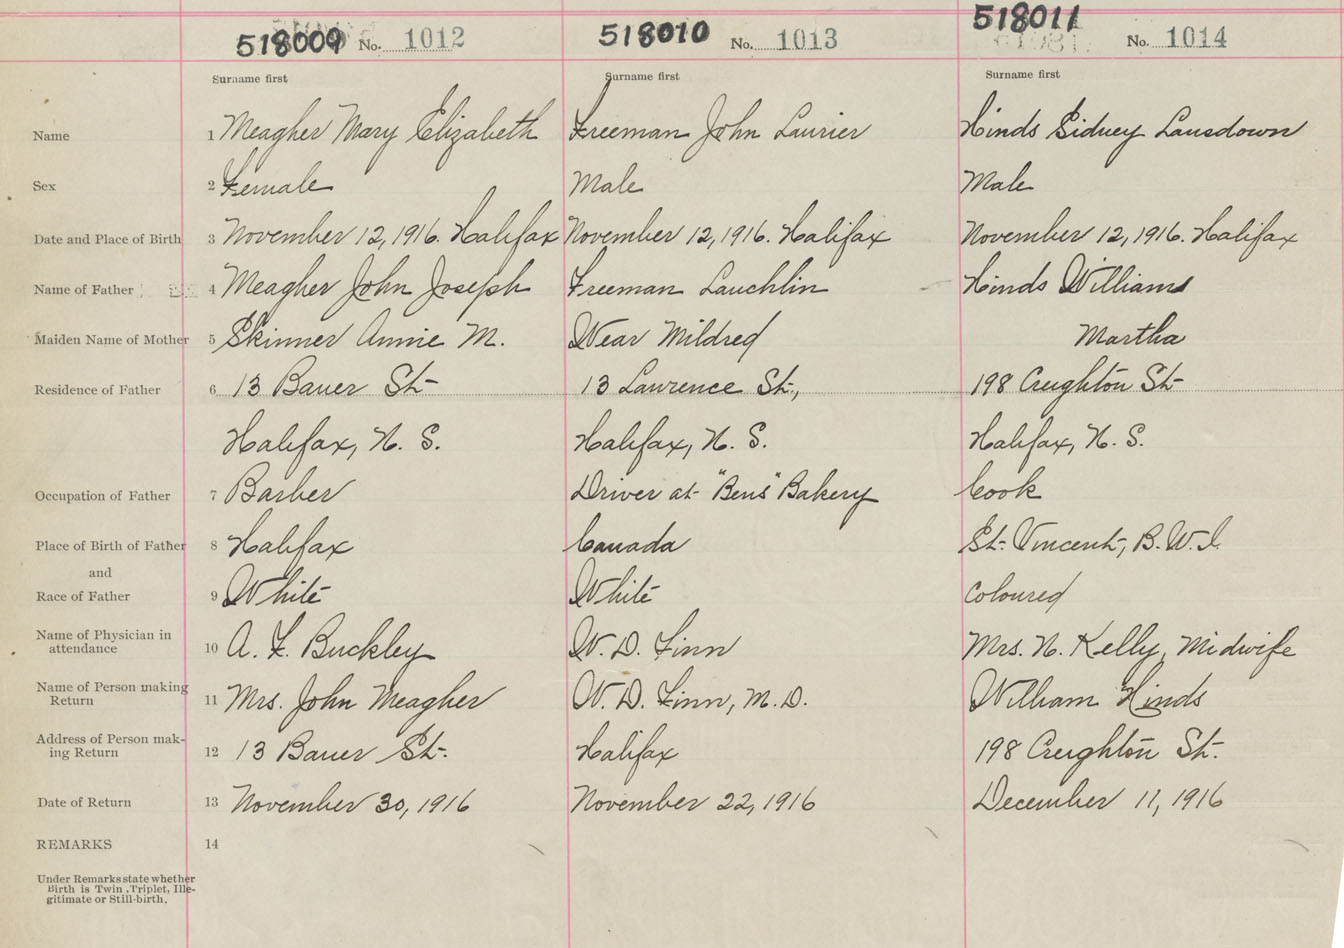 518009 No. 1012 518010 No. 1013 518011 No. 1014
Surname first Surname first Surname first
Name 1 Meagher Mary Elizabeth Freeman John Laurier Hinds Sidney Lansdown
Sex 2 Female Male Male
Date and Place of Birth 3 November 12, 1916. Halifax November 12, 1916. Halifax November 12, 1916. Halifax
Name of Father 4 Meagher John Joseph Freeman Lauchlin Hinds William
Maiden Name of Mother 5 Skinner Annie M. Wear Mildred Martha
Residence of Father 6 13 Bauer St- 13 Lawrence St., 198 Creighton St-
Halifax, N. S. Halifax, N. S. Halifax, N. S.
Occupation of Father 7 Barber Driver at "Bens" Bakery Cook
Place of Birth of Father 8 Halifax Canada St. Vincent, B. W. I.
and
Race of Father 9 White White Coloured
Name of Physician in
attendance 10 A. F. Buckley W. D. Finn Mrs. N. Kelly, Midwife
Name of Person making
Return 11 Mrs. John Meagher W. D. Finn, M. D. William Hinds
Address of Person mak-
ing Return 12 13 Bauer St. Halifax 198 Creighton St.
Date of Return 13 November 30, 1916 November 22, 1916 December 11, 1916
REMARKS 14
Under Remarks state whether
Birth is Twin, Triplet, Ille-
gitimate or Still-birth.